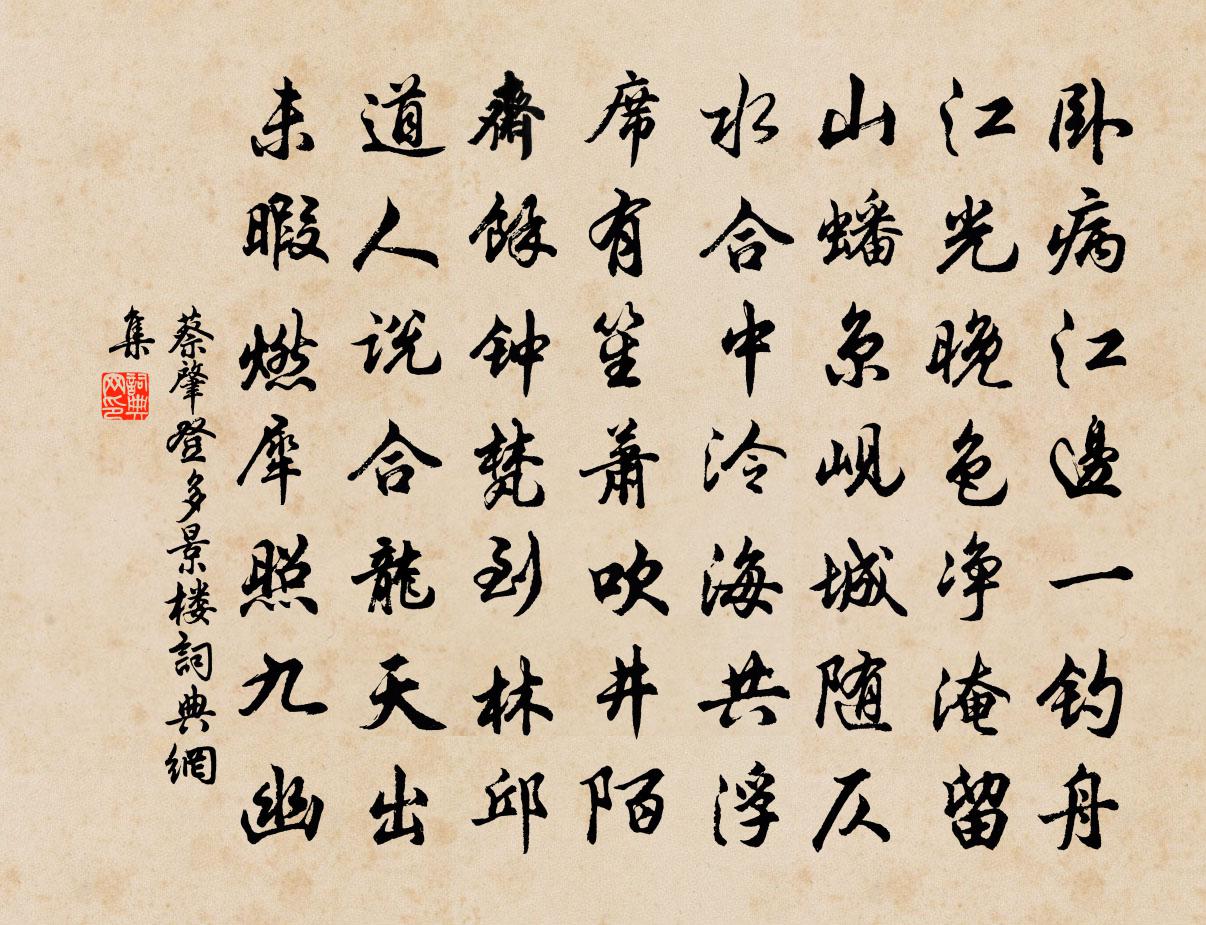 卧病江邊一钓舟
江光晚色净淹留
山蟠京岘城随仄
水合中泠海共浮
席有笙萧吹井陌
齋餘钟梵到林邱
道人说合龍天出
未暇燃犀照九幽
蔡肇登多景楼詞典網
集
詞典网印